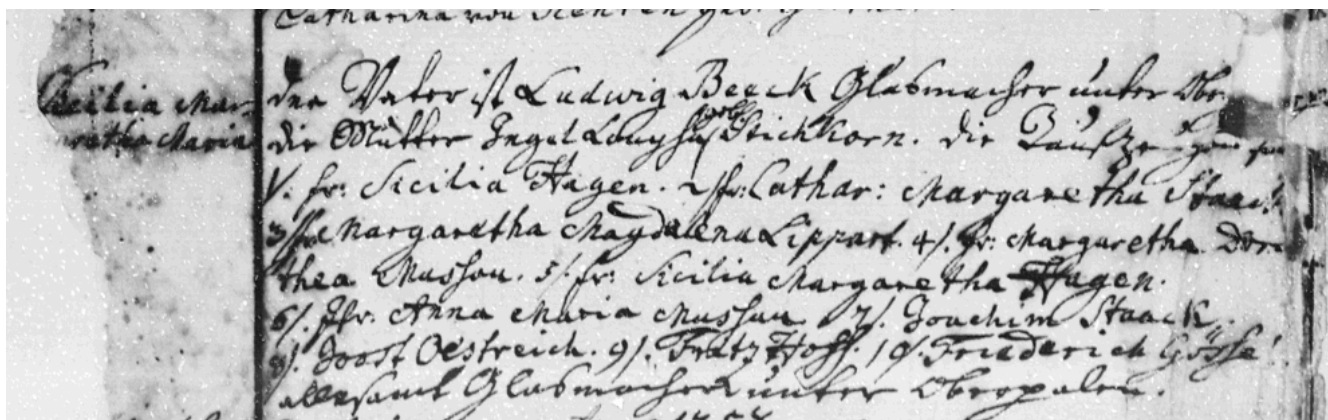 Catharina von
Sicilia Mar-
gretha Maria
der Vater ist Ludwig Beeck Glasmacher unter Ober
die Mutter Ingel Louysa Stichkorn. die Taufzeugen
1. fr: Sicilia Hagen. 2. Cathar: Margaretha Staack
3. Margaretha Magdalena Lippart. 4. fr: Margaretha Doro
thea Mussau. 5. fr: Sicilia Margaretha Hagen.
6. Jfr. Anna Maria Mussau 7. Joachim Staack.
8. Joost Oestreich. 9. Frantz Hoff. 10. Friederich Gösse
allesamt Glasmacher unter Oberpalen.